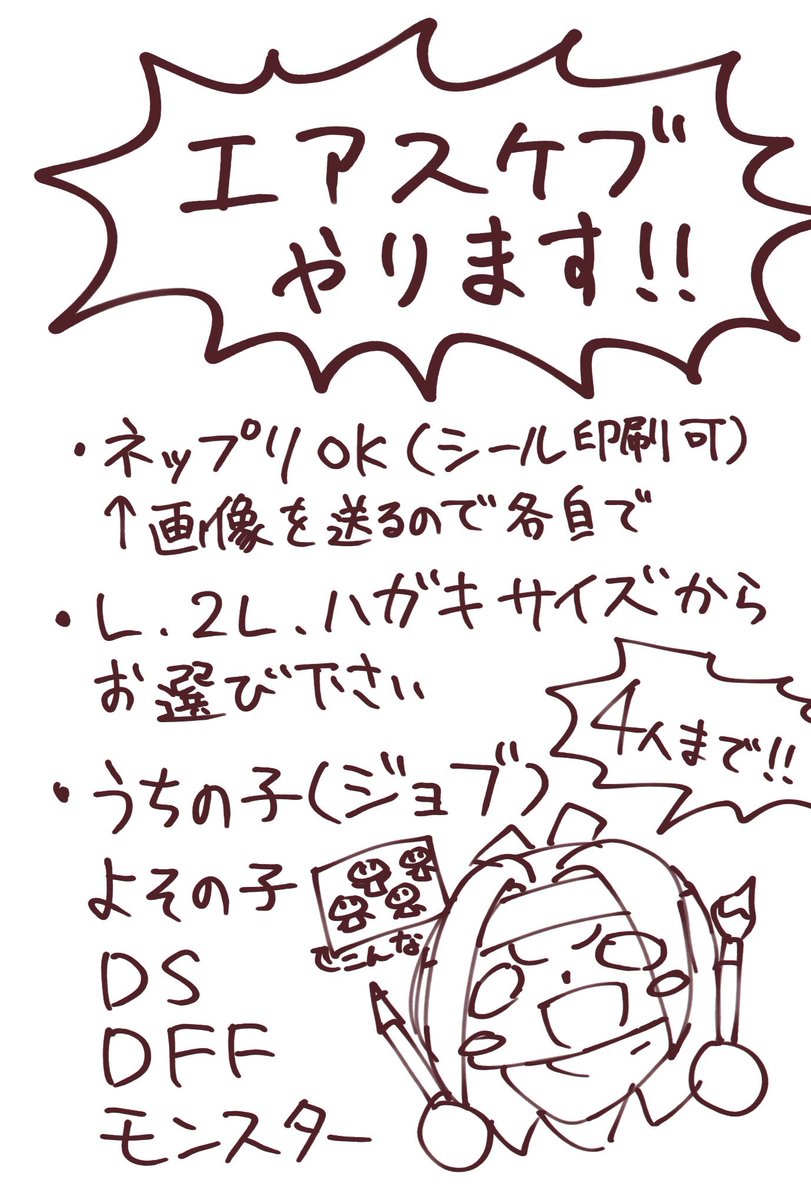 エアスケブ
やります!!
・ネップリOK(シール印刷可)
↑画像を送るので各自で
・L.2L.ハガキサイズから
お選び下さい
4人まで!!
・うちの子(ジョブ)
よその子
こんな
DS
DFF
モンスター